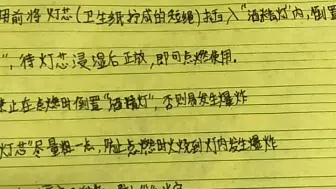 用前将灯芯(卫生纸拧成的短绳)插入“酒精灯”内,倒置
”,待灯芯浸湿后正放,即可点燃使用。
止在点燃时倒置“酒精灯”,否则易发生爆炸
灯芯”尽量粗一点,防止点燃时火烧到灯内发生爆炸